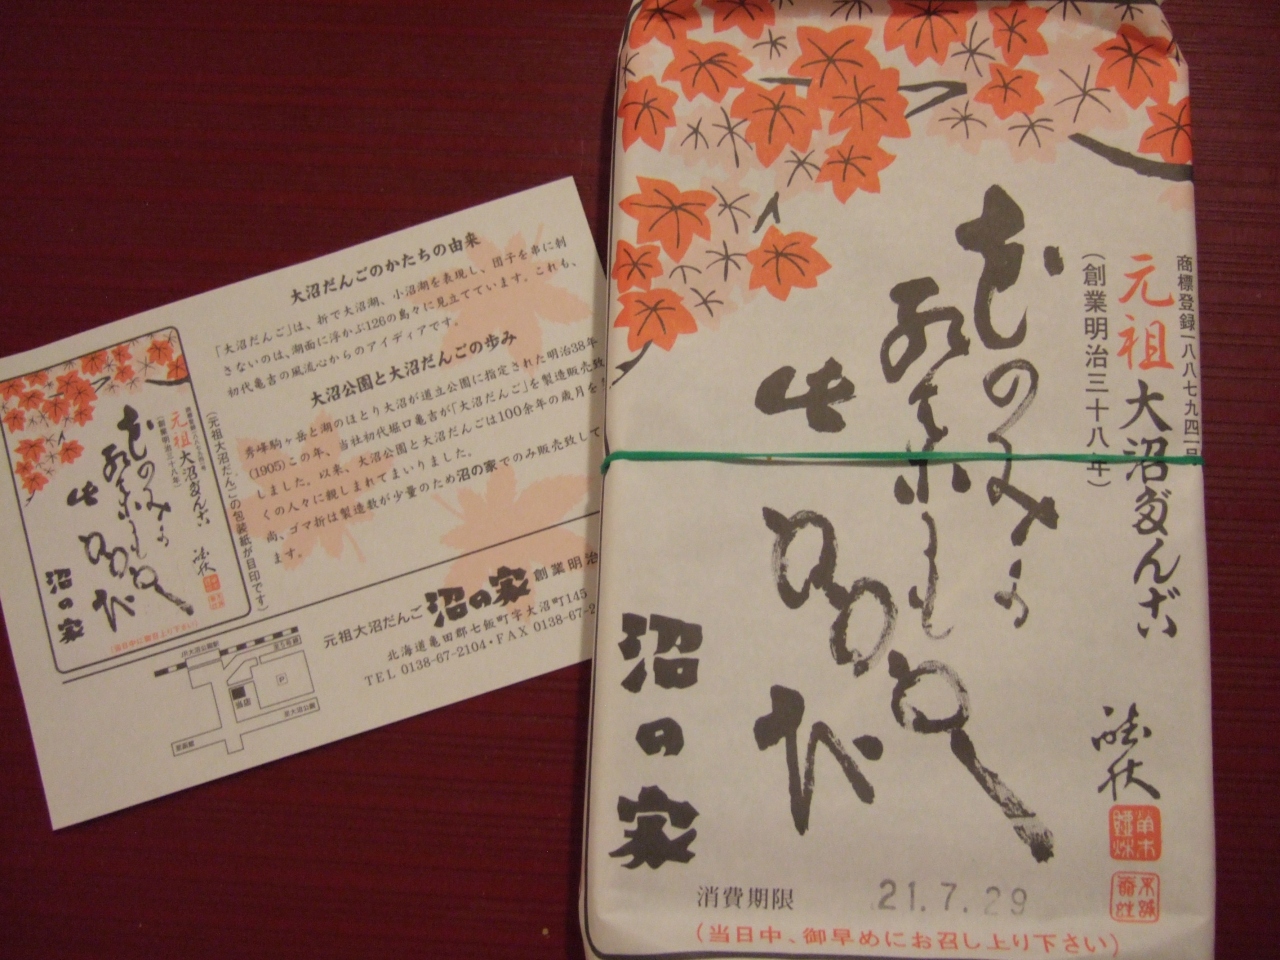 大沼だんごのかたちの由来
「大沼だんご」は、折で大沼湖、小沼湖を表現し、団子を串に刺
さないのは、湖面に浮かぶ126の島々に見立てています。これも、
初代亀吉の風流心からのアイディアです。
大沼公園と大沼だんごの歩み
秀峰駒ヶ岳と湖のほとり大沼が道立公園に指定された明治38年
(1905)この年、当社初代堀口亀吉が「大沼だんご」を製造販売致
しました。以来、大沼公園と大沼だんごは100余年の歳月を
くの人々に親しまれてまいりました。
尚、ゴマ折は製造数が少量のため沼の家でのみ販売致して
ます。
元祖大沼だんご 沼の家 創業明治
北海道亀田郡七飯町字大沼町145
TEL 0138-67-2104・FAX 0138-67-2
(元祖大沼だんごの包装紙が目印です)
元祖大沼だんご
(創業明治三十八年)
沼の家
P
商標登録一八八七九四一号
元祖大沼だんご
(創業明治三十八年)
花のみか
紅葉にも
此
だ
沼の家
消費期限 21.7.29
(当日中、御早めにお召し上り下さい)